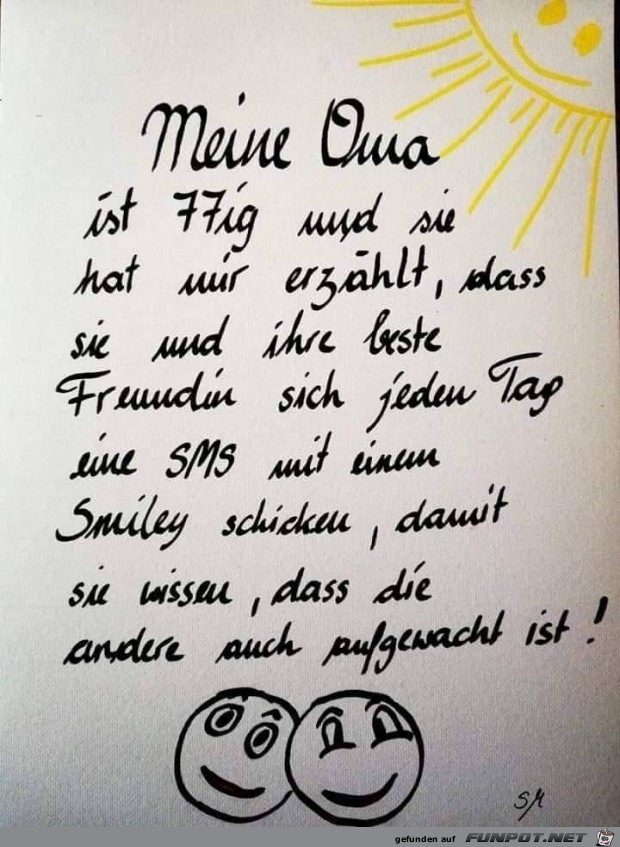 Meine Oma
ist 77ig und sie
hat mir erzählt, dass
sie und ihre beste
Freundin sich jeden Tag
eine SMS mit einem
Smiley schicken, damit
sie wissen, dass die
andere auch aufgewacht ist!
SM
gefunden auf FUNPOT.NET